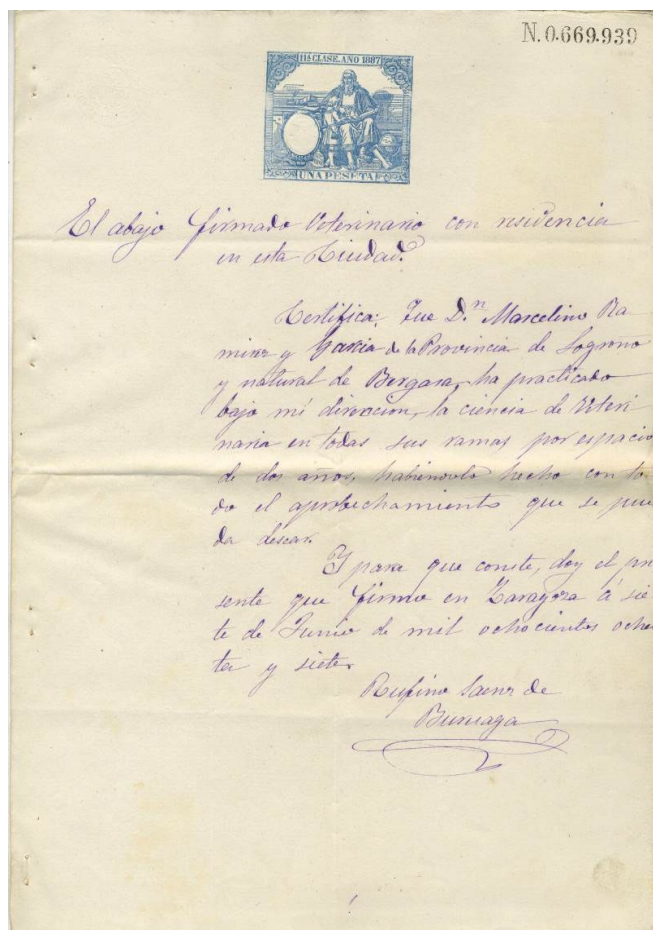 N.0.669.939
11ª CLASE. AÑO 1887
UNA PESETA
El abajo firmado Veterinario con residencia
en esta Ciudad.
Certifica; Que D.n Marcelino Ra
mirez y Garcia de la Provincia de Logroño
y natural de Bergasa, ha practicado
bajo mi direccion, la ciencia de Veteri
naria en todas sus ramas por espacio
de dos años, habiendolo hecho con to
do el aprobechamiento que se pue
da desear.
Y para que conste, doy el pre
sente que firmo en Zaragoza á sie
te de Junio de mil ochocientos oche
ta y siete.
Rufino Saenz de
Buruaga